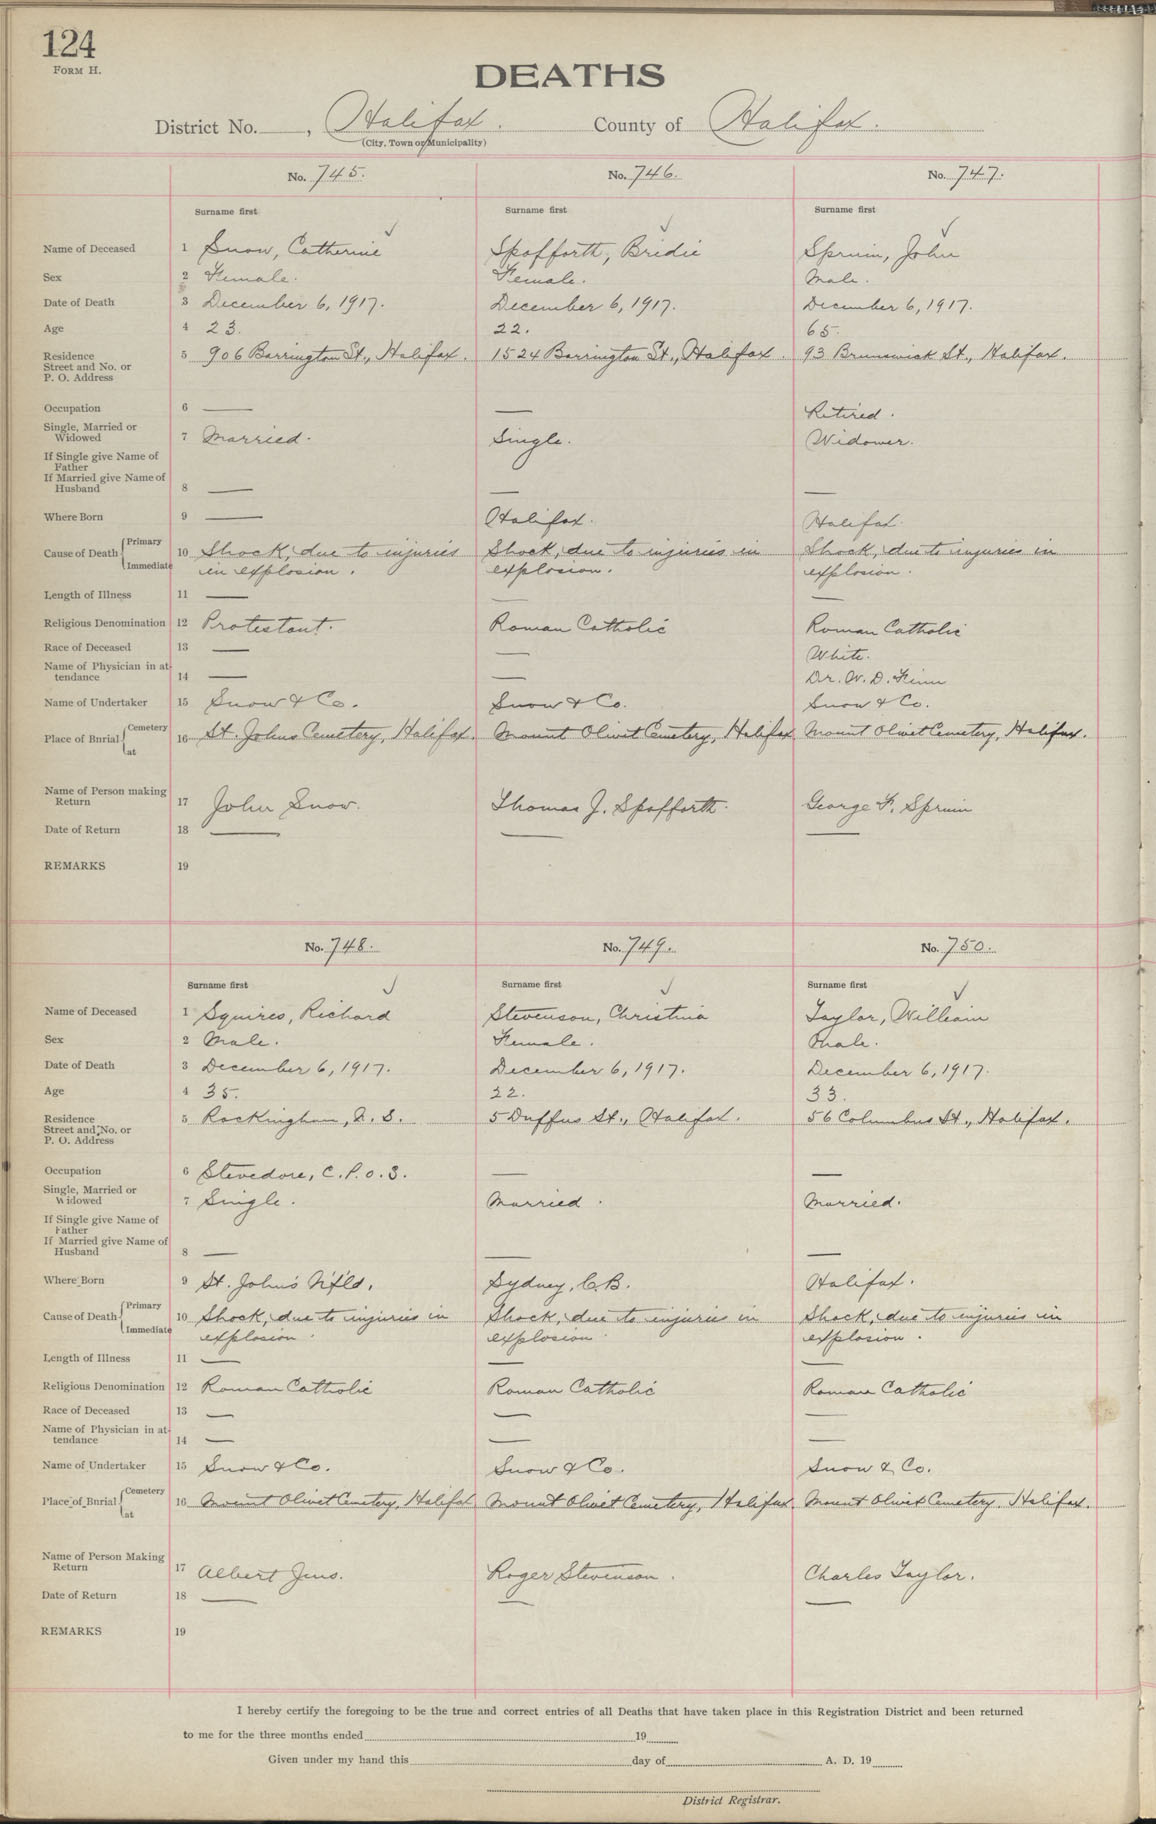 124
FORM H.
DEATHS
District No. , Halifax. County of Halifax.
(City, Town or Municipality)
No. 745. No. 746. No. 747.
Surname first Surname first Surname first
Name of Deceased 1 Snow, Catherine Spofforth, Bridie Spruin, John
Sex 2 Female. Female. Male.
Date of Death 3 December 6, 1917. December 6, 1917. December 6, 1917.
Age 4 23. 22. 65.
Residence Street and No. or P. O. Address 5 906 Barrington St., Halifax. 1524 Barrington St., Halifax. 93 Brunswick St., Halifax.
Occupation 6 — — Retired.
Single, Married or Widowed 7 Married. Single. Widower.
If Single give Name of Father
If Married give Name of Husband 8 — — —
Where Born 9 — Halifax. Halifax.
Cause of Death Primary Immediate 10 Shock, due to injuries Shock, due to injuries in Shock, due to injuries in
in explosion. explosion. explosion.
Length of Illness 11 — — —
Religious Denomination 12 Protestant. Roman Catholic Roman Catholic
Race of Deceased 13 — — White.
Name of Physician in attendance 14 — — Dr. W. D. Finn
Name of Undertaker 15 Snow & Co. Snow & Co. Snow & Co.
Place of Burial Cemetery at 16 St. Johns Cemetery, Halifax. Mount Olivet Cemetery, Halifax Mount Olivet Cemetery, Halifax.
Name of Person making Return 17 John Snow. Thomas J. Spofforth. George F. Spruin
Date of Return 18 — — —
REMARKS 19
No. 748. No. 749. No. 750.
Surname first Surname first Surname first
Name of Deceased 1 Squires, Richard Stevenson, Christina Taylor, William
Sex 2 Male. Female. Male.
Date of Death 3 December 6, 1917. December 6, 1917. December 6, 1917.
Age 4 35. 22. 33.
Residence Street and No. or P. O. Address 5 Rockingham, N. S. 5 Duffus St., Halifax. 56 Columbus St., Halifax.
Occupation 6 Stevedore, C.P.O.S. — —
Single, Married or Widowed 7 Single. Married. Married.
If Single give Name of Father
If Married give Name of Husband 8 — — —
Where Born 9 St. John's N'f'ld. Sydney, C.B. Halifax.
Cause of Death Primary Immediate 10 Shock, due to injuries in Shock, due to injuries in Shock, due to injuries in
explosion. explosion. explosion.
Length of Illness 11 — — —
Religious Denomination 12 Roman Catholic Roman Catholic Roman Catholic
Race of Deceased 13 — — —
Name of Physician in attendance 14 — — —
Name of Undertaker 15 Snow & Co. Snow & Co. Snow & Co.
Place of Burial Cemetery at 16 Mount Olivet Cemetery, Halifax Mount Olivet Cemetery, Halifax. Mount Olivet Cemetery, Halifax.
Name of Person Making Return 17 Albert Roger Stevenson. Charles Taylor.
Date of Return 18 — — —
REMARKS 19
I hereby certify the foregoing to be the true and correct entries of all Deaths that have taken place in this Registration District and been returned
to me for the three months ended 19
Given under my hand this day of A. D. 19
District Registrar.